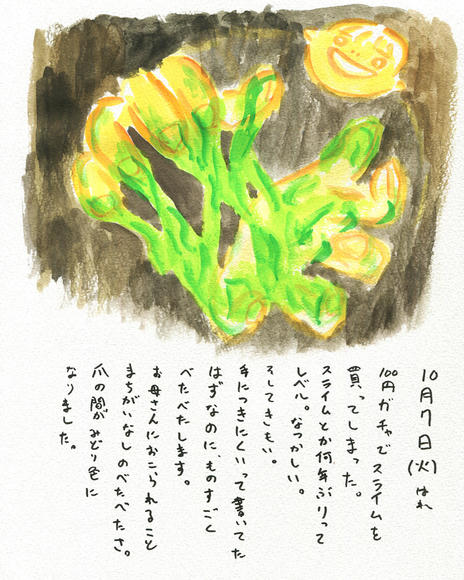 10月7日(火)はれ
100円ガチャでスライムを
買ってしまった。
スライムとか何年ぶりって
レベル。なつかしい。
そしてきもい。
手につきにくいって書いてた
はずなのに、ものすごく
べたべたします。
お母さんにおこられること
まちがいなしのべたべたさ。
爪の間がみどり色に
なりました。